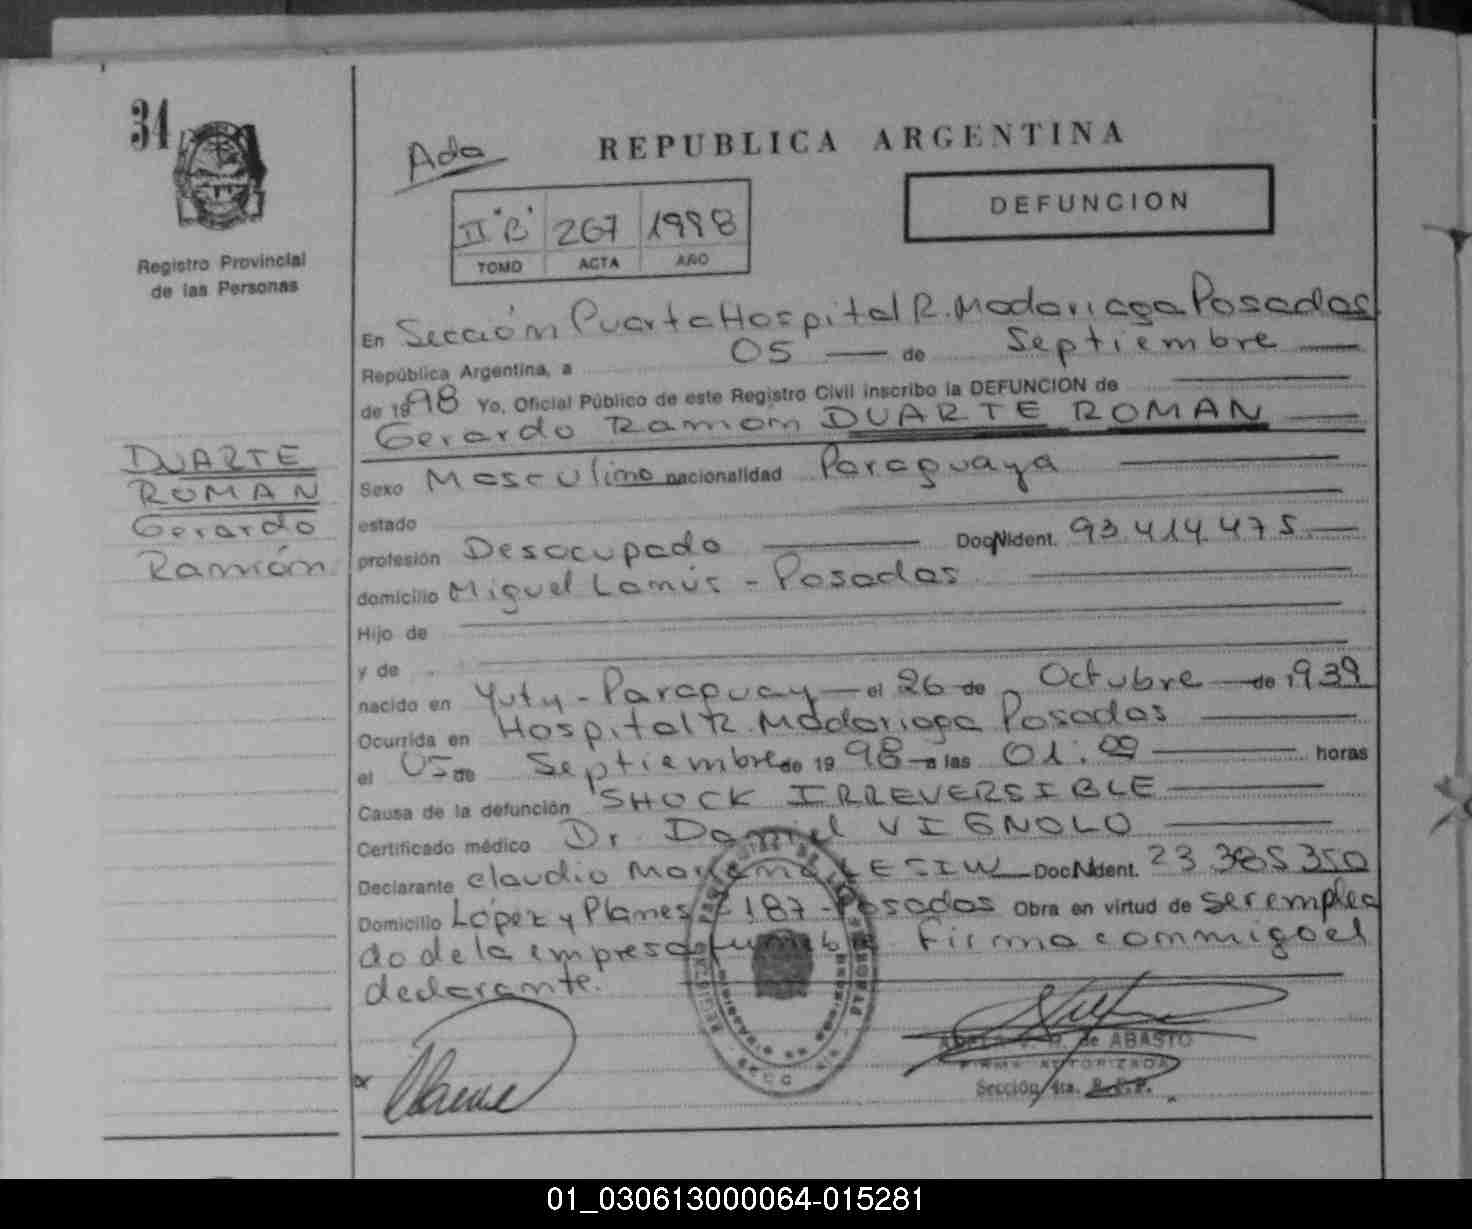 34
Registro Provincial
de las Personas
DUARTE
ROMAN
Gerardo
Ramón
Ada
REPUBLICA ARGENTINA
DEFUNCION
II "B" 267 1998
TOMO ACTA AÑO
En Sección Puerta Hospital R. Madariaga Posadas
República Argentina, a 05 — de Septiembre
de 1998 Yo, Oficial Público de este Registro Civil inscribo la DEFUNCION de
Gerardo Ramón DUARTE ROMAN
Sexo Masculino nacionalidad Paraguaya
estado
profesión Desocupado Doc. Nident. 93.414.475
domicilio Miguel Lanús - Posadas
Hijo de
y de
nacido en Yuty - Paraguay — el 26 de Octubre de 1939
Ocurrida en Hospital R. Madariaga Posadas
el 05 de Septiembre de 1998 a las 01:00 horas
Causa de la defunción SHOCK IRREVERSIBLE
Certificado médico Dr. Daniel VIGNOLO
Declarante Claudio LESIW Doc. Nident. 23.385.350
Domicilio López y Planes 187 - Posadas Obra en virtud de ser emplea
do de la empresa funebre Firma conmigo el
declarante.
de ABASTO
FIRMA AUTORIZADA
Sección 4ta. R.C.P.
01_030613000064-015281